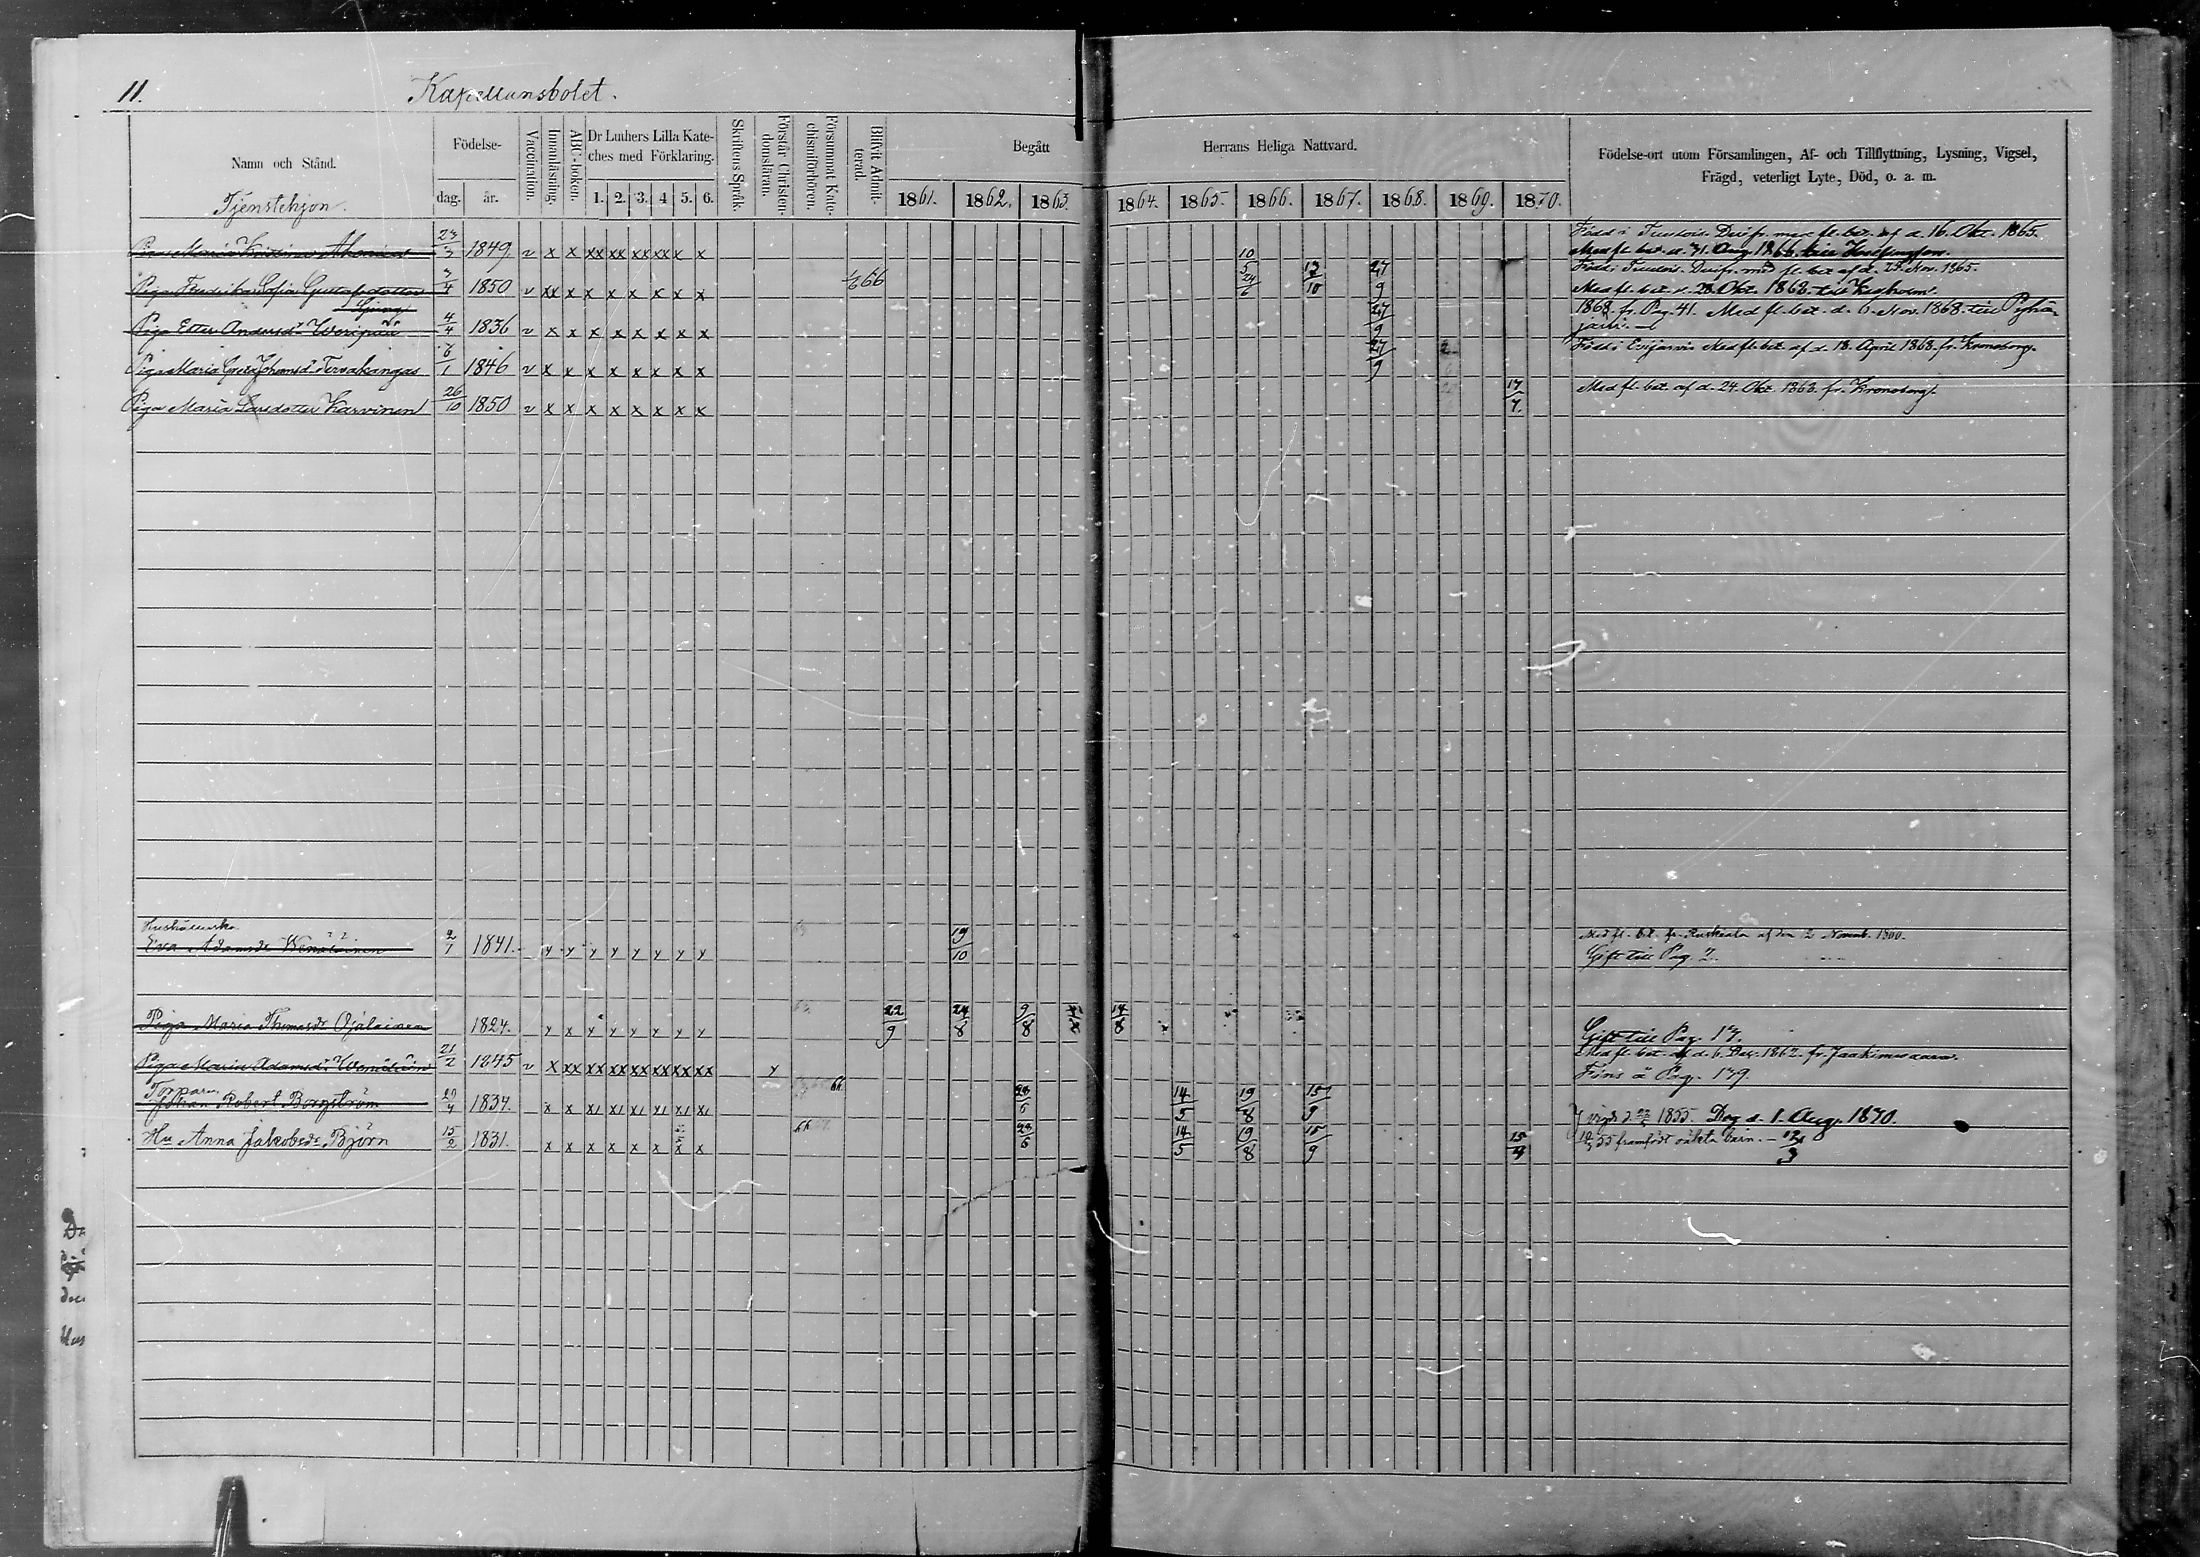 11.
Kapellansbolet.
Namn och Stånd.
Tjenstehjon.
Födelse-
dag. år.
Vaccination.
Innanläsning.
ABC-boken.
Dr Luthers Lilla Kate-
ches med Förklaring.
1. 2. 3. 4 5. 6.
Skriftens Språk.
Förstår Christen-
domsläran.
Försummat Kate-
chismiförhören.
Blifvit Admit-
terad.
Begått Herrans Heliga Nattvard.
1861. 1862. 1863. 1864. 1865. 1866. 1867. 1868. 1869. 1870.
Födelse-ort utom Församlingen, Af- och Tillflyttning, Lysning, Vigsel,
Frägd, veterligt Lyte, Död, o. a. m.
Född i med fl. bet. af d. 16. Okt. 1865.
Piga Maria 23/3 1849. v x x xx xx xx xx x x 10 Med fl. bet. d. 31. Aug. 1866.
Född i med fl. bet. af d. 25. Nov. 1865.
Piga Fredrika Sofia Gustafsdotter 3/4 1850 v xx x x x x x x x 66 5 24/6 13/10 27/9 Med fl. bet. d. 28 Okt. 1868. till
Piga Ester Andersdr 4/4 1836 v x x x x x x x x 27/9 1868. fr. Pag. 41. Med fl. bet. d. 6. Nov. 1868. till Pyhä-
järvi.
Piga Maria Greta Johansdr Tervakangas 6/1 1846 v x x x x x x x x 27/9 Född i Med fl. bet. af d. 18. April 1868. fr. Kronoborg.
Piga Maria Larsdotter Karvinen 26/10 1850 v x x x x x x x x 17/7. Med fl. bet. af d. 24. Okt. 1868. fr. Kronoborg.
Hushållerska
Eva Adamsdr Wenäläinen 2/1 1841. y y y y y y y y 19/10 Med fl. bet. fr. Ruskeala af den 2 Novemb. 1860.
Gift till Pag. 2.
Piga Maria Thomasdr Ojalainen 1824. y x y y y y y y 22/9 24/8 9/8 14/8 Gift till Pag. 17.
Piga Maria Adamsdr Wenäläinen 21/2 1845 v x xx xx xx xx xx xx xx y Med fl. bet. af d. 6. Dec. 1862. fr. Jaakimvaara.
Fins å Pag. 179.
Torparen
Johan Robert Borgström 29/4 1834. 28/6 14/5 19/8 15/9 1855. Dog d. 1. Aug. 1870.
Hu Anna Jakobsdr Björn 15/2 1831. x x x x x x x x 28/6 14/5 19/8 15/9 15/4 55 framfödt oäkta barn.